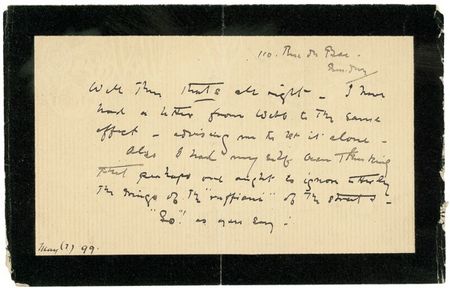 110. Rue du Bac.
Sunday
Well then that's all right – I have
had a letter from Webb to the same
effect – advising me to let it alone –
Also I had myself been thinking
that perhaps one ought to ignore utterly
the doings of the "ruffians" of the streets –
"So" as you say –
May (?) 99.